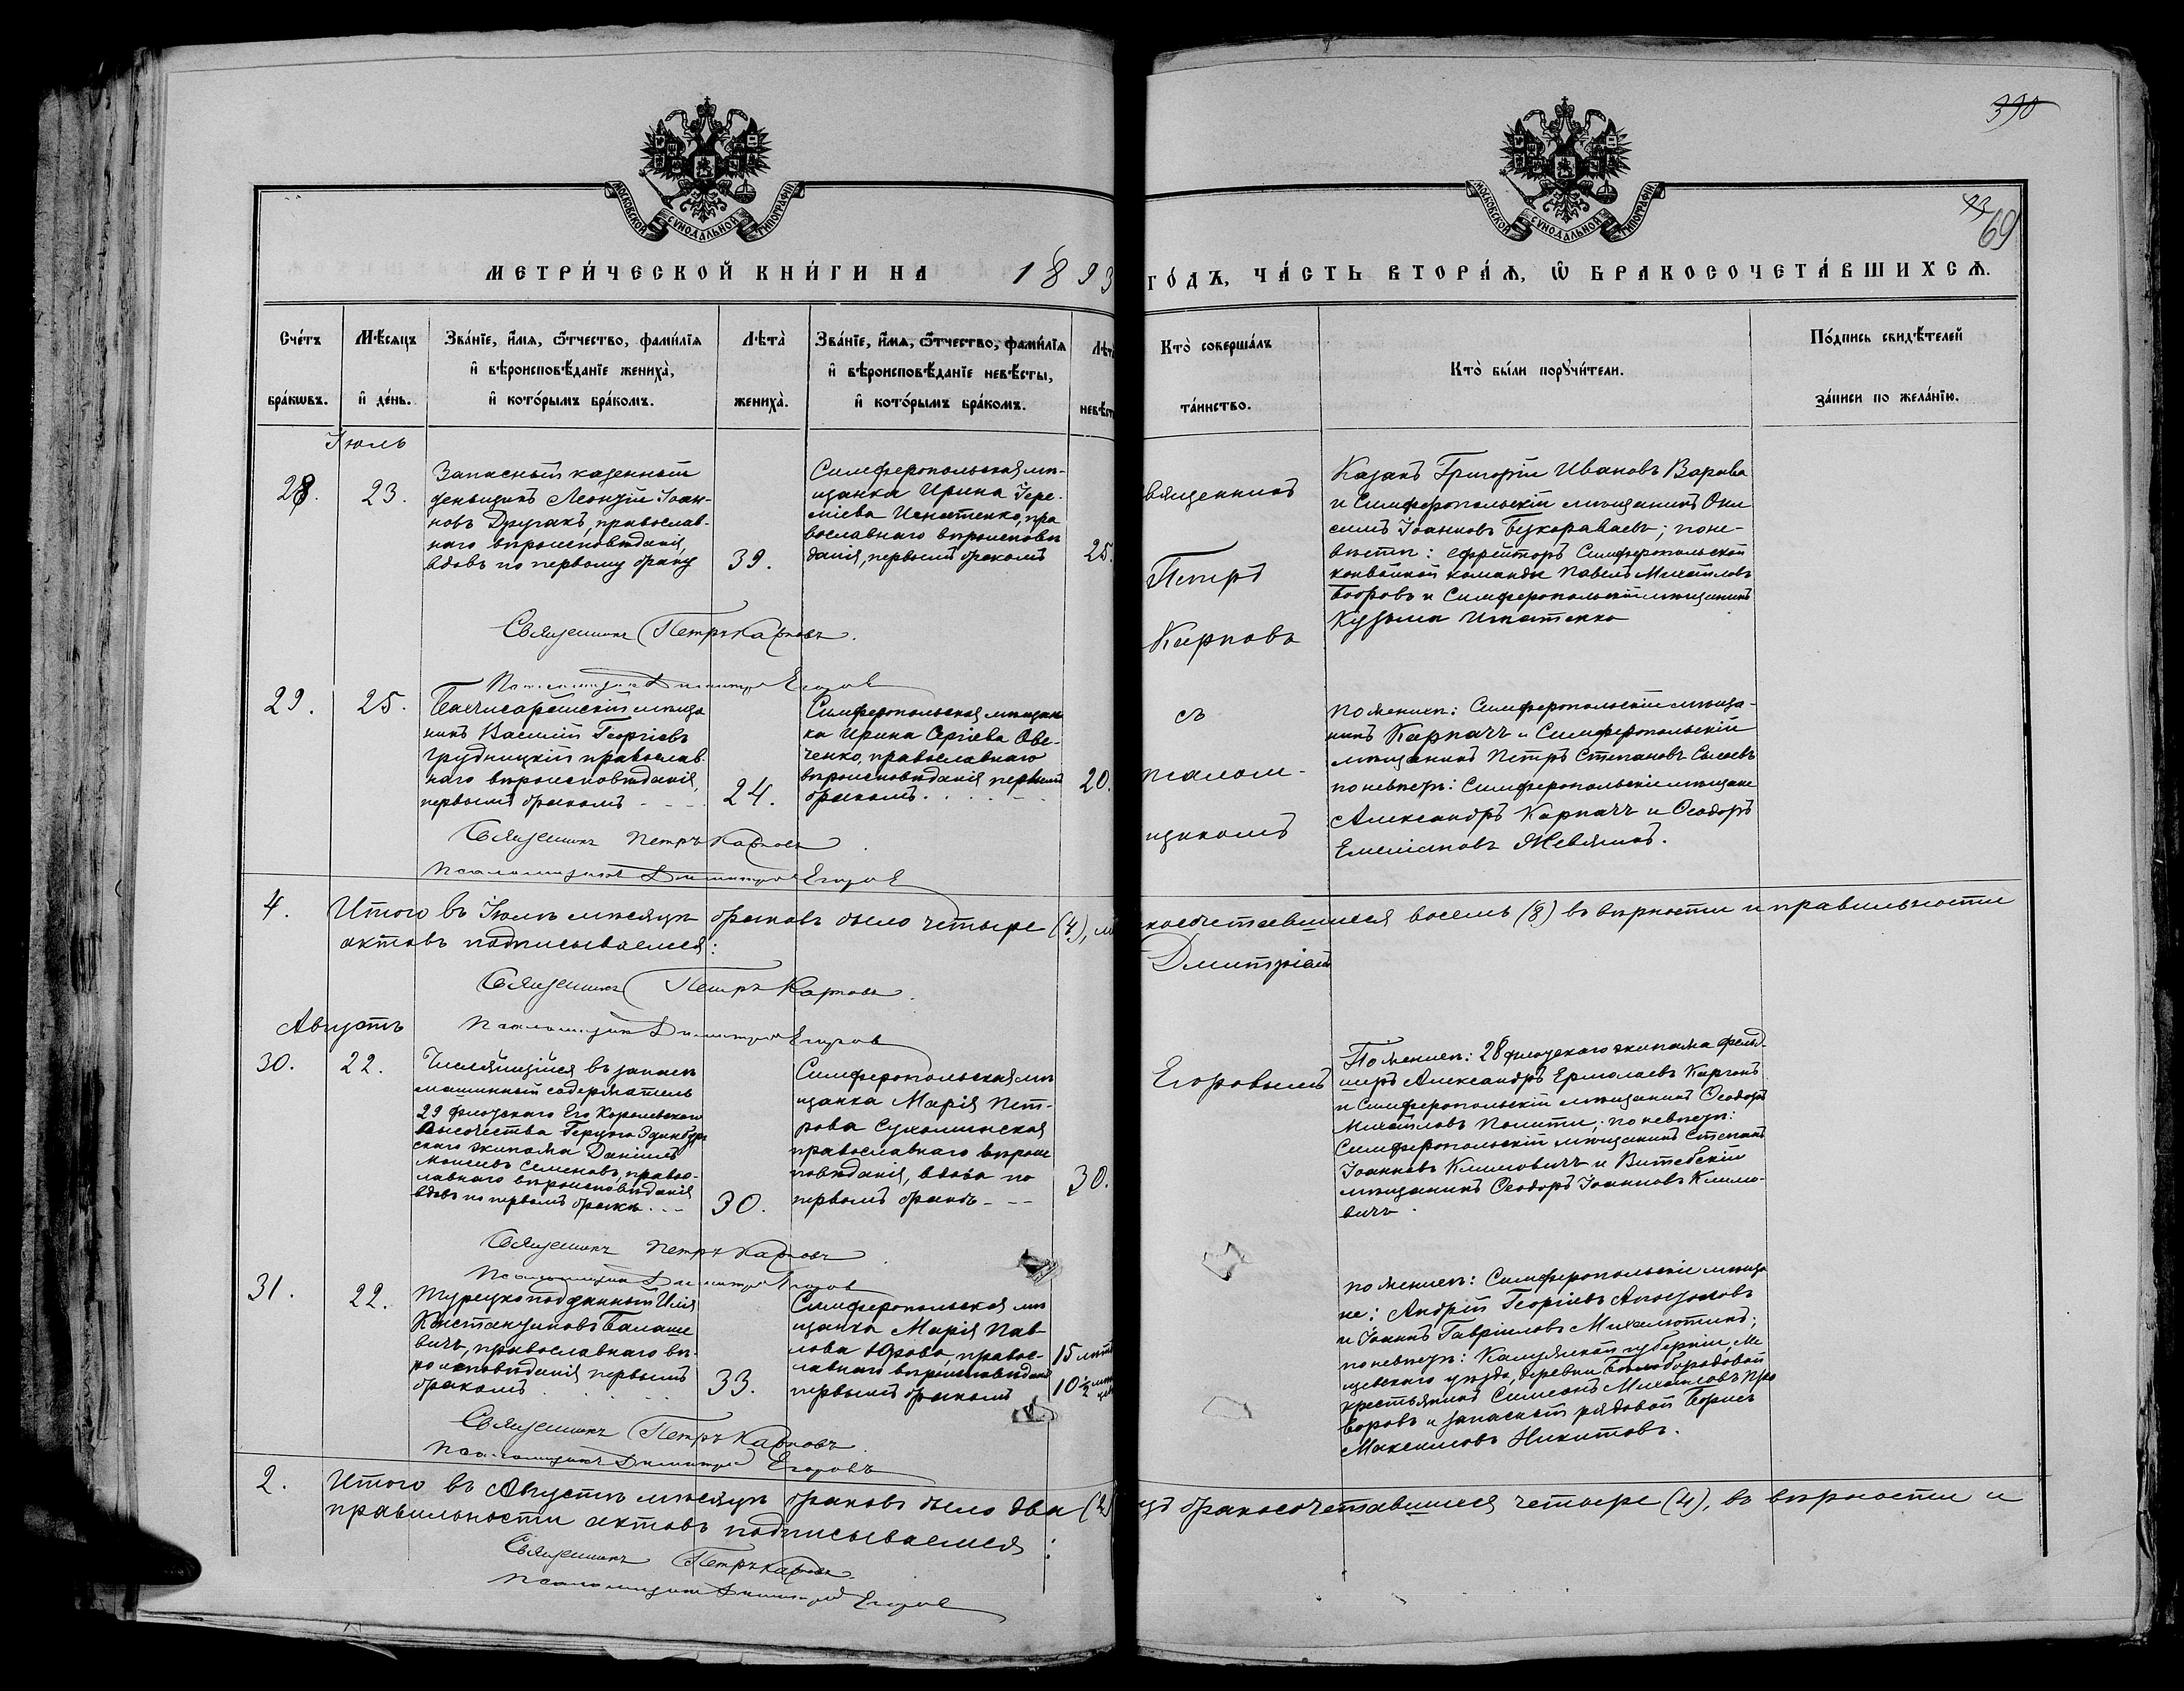 390
МОСКОВСКОЙ СѴНОДАЛЬНОЙ ТИПОГРАФІИ
МОСКОВСКОЙ СѴНОДАЛЬНОЙ ТИПОГРАФІИ
69
МЕТРИ́ЧЕСКОЙ КНИ́ГИ НА 1893
ГО́ДЪ, ЧА́СТЬ ВТОРА́Ѧ, Ѿ БРАКОСОЧЕТА́ВШИХСѦ.
Сче́тъ
бра́кѡвъ.
Мѣ́сяцъ
и҆ де́нь.
Зва́нїе, и҆́мѧ, ѻ҆́тчество, фами́лїѧ
и҆ вѣроисповѣ́данїе жениха̀,
и҆ кото́рымъ бра́комъ.
Лѣта̀
жениха̀.
Зва́нїе, и҆́мѧ, ѻ҆́тчество, фами́лїѧ
и҆ вѣроисповѣ́данїе невѣ́сты,
и҆ кото́рымъ бра́комъ.
Лѣта
невѣст
Кто̀ соверша́лъ
та́инство.
Кто̀ бы́ли порꙋчи́тели.
По́дпись свидѣ́телей
за́писи по жела́нїю.
Іюль
28.
23.
Запасный казенный
деньщикъ Леонтій Іоан-
новъ Другакъ, православ-
наго вѣроисповѣданія,
вдовъ по первому браку
39.
Симферопольская мѣ-
щанка Ирина Іере-
міева Игнатенко, пра
вославнаго вѣроисповѣ
данія, первымъ бракомъ
25.
Священникъ
Петръ
Карповъ
съ
псалом-
щикомъ
Дмитріемъ
Егоровымъ
Казакъ Григорій Ивановъ Варава
и Симферопольскій мѣщанинъ Они
симъ Іоанновъ Букораваевъ; по не-
вѣстѣ: ефрейторъ Симферопольской
конвойной команды Павелъ Михайловъ
Бобровъ и Симферопольскій мѣщанинъ
Кузьма Игнатенко
Священникъ Петръ Карповъ.
Псаломщикъ Димитрій Егоровъ
29.
25.
Бахчисарайскій мѣща
нинъ Василій Георгіевъ
Грудницкій православ-
наго вѣроисповѣданія,
первымъ бракомъ
24.
Симферопольская мѣщан
ка Ирина Сергіева Ове-
ченко, православнаго
вѣроисповѣданія первымъ
бракомъ.
20.
По женихѣ: Симферопольскій мѣща-
нинъ Карпачъ и Симферопольскій
мѣщанинъ Петръ Степановъ Сысоевъ
по невѣстѣ: Симферопольскіе мѣщане
Александръ Карпачъ и Ѳеодоръ
Емеліановъ Жевякъ.
Священникъ Петръ Карповъ
Псаломщикъ Димитрій Егоровъ
4.
Итого въ Іюлѣ мѣсяцѣ браковъ было четыре (4), косочетавшихся восемь (8) въ вѣрности и правильности
актовъ подписываемся:
Священникъ Петръ Карповъ.
Псаломщикъ Димитрій Егоровъ
Августъ
30.
22.
Числящійся въ запасѣ
машинный содержатель
29 флотскаго Его Королевскаго
Высочества Герцога Эдинбург
скаго экипажа Даніилъ
Моисеевъ Семеновъ, правос-
лавнаго вѣроисповѣданія
вдовъ по первомъ бракѣ
30.
Симферопольская мѣ
щанка Марія Пет-
рова Сухолинская
православнаго вѣроис
повѣданія, вдова по
первомъ бракѣ
30.
По женихѣ: 28 флотскаго экипажа фельд-
шеръ Александръ Ермолаевъ Каргинъ
и Симферопольскій мѣщанинъ Ѳеодоръ
Михайловъ Полити; по невѣстѣ:
Симферопольскій мѣщанинъ Степанъ
Іоанновъ Климовичъ и Витебскій
мѣщанинъ Ѳеодоръ Іоанновъ Климо-
вичъ.
Священникъ Петръ Карповъ
Псаломщикъ Димитрій Егоровъ
31.
22.
Турецкоподданный Илія
Константиновъ Балаше
вичъ, православнаго вѣ-
роисповѣданія первымъ
бракомъ
33.
Симферопольская мѣ
щанка Марія Пав-
лова Юрова, правос-
лавнаго вѣроисповѣданія
первымъ бракомъ
15 лѣтъ
10½ мѣс
По женихѣ: Симферопольскіе мѣща
не: Андрей Георгіевъ Апостоловъ
и Іоаннъ Гавріиловъ Михалютинъ;
по невѣстѣ: Калужской губерніи, Ме
щевскаго уѣзда, деревни Белобородовой
крестьянинъ Симеонъ Михайловъ Про
воровъ и запасный рядовой Борисъ
Максимовъ Никитовъ.
Священникъ Петръ Карповъ.
Псаломщикъ Димитрій Егоровъ
2.
Итого въ Августѣ мѣсяцѣ браковъ было два (2) бракосочетавшихся четыре (4), въ вѣрности и
правильности актовъ подписываемся:
Священникъ Петръ Карповъ.
Псаломщикъ Димитрій Егоровъ